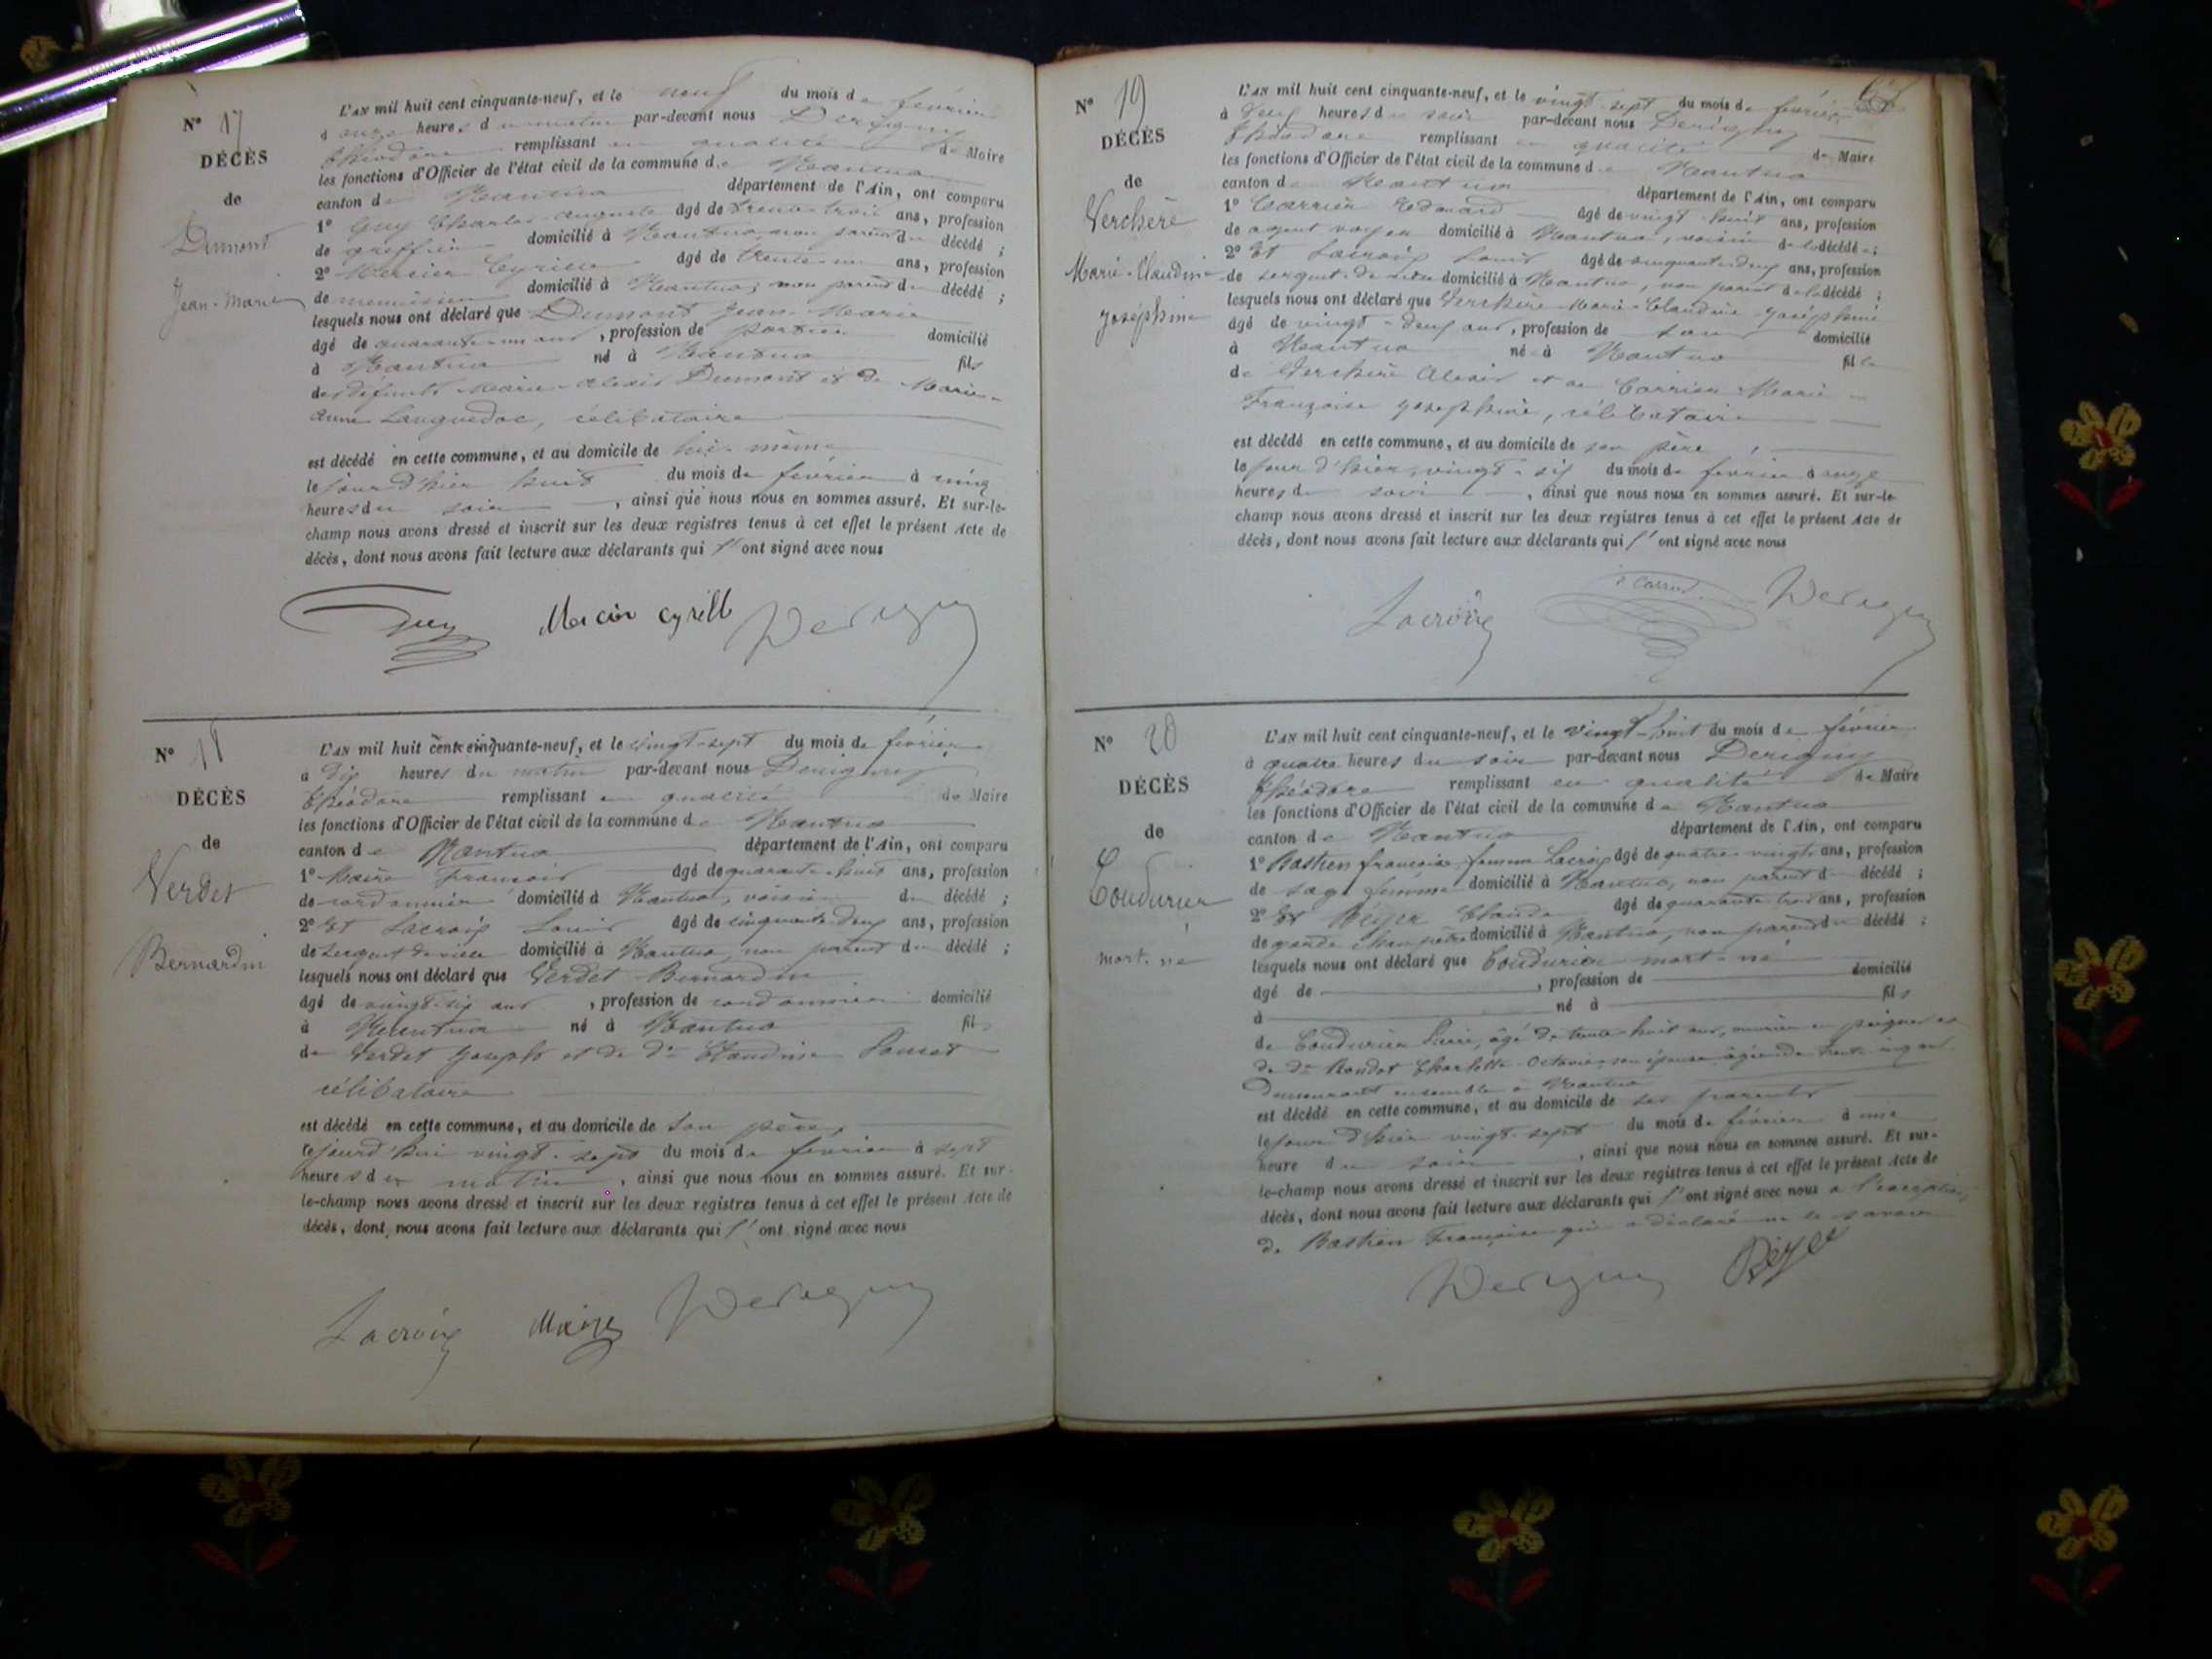 N° 17
DÉCÈS
de
Dumont
Jean-Marie
L'AN mil huit cent cinquante-neuf, et le neuf du mois de février
à onze heures du matin par-devant nous Derigny
Théodore remplissant en qualité de Maire
les fonctions d'Officier de l'état civil de la commune de Nantua
canton de Nantua département de l'Ain, ont comparu
1° Guy Charles Auguste âgé de trente-trois ans, profession
de greffier domicilié à Nantua, non parent du décédé ;
2° Mercier Cyrille âgé de trente-un ans, profession
de menuisier domicilié à Nantua, non parent du décédé ;
lesquels nous ont déclaré que Dumont Jean-Marie
âgé de quarante-un ans, profession de portier domicilié
à Nantua né à Nantua fils
de défunts Marie-Alexis Dumont et de Marie-
Anne Languedoc, célibataire
est décédé en cette commune, et au domicile de lui-même
le jour d'hier huit du mois de février à cinq
heures du soir, ainsi que nous nous en sommes assuré. Et sur-le-
champ nous avons dressé et inscrit sur les deux registres tenus à cet effet le présent Acte de
décès, dont nous avons fait lecture aux déclarants qui l'ont signé avec nous
Guy Mercier Cyrill Derigny
N° 18
DÉCÈS
de
Verdet
Bernardin
L'AN mil huit cent cinquante-neuf, et le vingt-sept du mois de février
à dix heures du matin par-devant nous Derigny
Théodore remplissant en qualité de Maire
les fonctions d'Officier de l'état civil de la commune de Nantua
canton de Nantua département de l'Ain, ont comparu
1° François âgé de quarante-huit ans, profession
de cordonnier domicilié à Nantua, voisin du décédé ;
2° Et Lacroix Louis âgé de cinquante-deux ans, profession
de sergent de ville domicilié à Nantua, non parent du décédé ;
lesquels nous ont déclaré que Verdet Bernardin
âgé de vingt-six ans, profession de cordonnier domicilié
à Nantua né à Nantua fils
de Verdet Joseph et de De Claudine
célibataire
est décédé en cette commune, et au domicile de son père,
cejourd'hui vingt-sept du mois de février à sept
heures du matin, ainsi que nous nous en sommes assuré. Et sur-
le-champ nous avons dressé et inscrit sur les deux registres tenus à cet effet le présent Acte de
décès, dont nous avons fait lecture aux déclarants qui l'ont signé avec nous
Lacroix Derigny
N° 19
DÉCÈS
de
Verchère
Marie-Claudine
Joséphine
L'AN mil huit cent cinquante-neuf, et le vingt-sept du mois de février
à deux heures du soir par-devant nous Derigny
Théodore remplissant en qualité de Maire
les fonctions d'Officier de l'état civil de la commune de Nantua
canton de Nantua département de l'Ain, ont comparu
1° Carrier Edouard âgé de vingt-huit ans, profession
de agent voyer domicilié à Nantua, voisin de la décédée ;
2° Et Lacroix Louis âgé de cinquante-deux ans, profession
de sergent de ville domicilié à Nantua, non parent de la décédée ;
lesquels nous ont déclaré que Verchère Marie-Claudine-Joséphine
âgé de vingt-deux ans, profession de sans domicilié
à Nantua née à Nantua fille
de Verchère Alexis et de Carrier Marie-
Françoise Josephine, célibataire
est décédé en cette commune, et au domicile de son père,
le jour d'hier, vingt-six du mois de février à onze
heures du soir, ainsi que nous nous en sommes assuré. Et sur-le-
champ nous avons dressé et inscrit sur les deux registres tenus à cet effet le présent Acte de
décès, dont nous avons fait lecture aux déclarants qui l'ont signé avec nous
Lacroix Derigny
N° 20
DÉCÈS
de
Coudurier
mort-né
L'AN mil huit cent cinquante-neuf, et le vingt-huit du mois de février
à quatre heures du soir par-devant nous Derigny
Théodore remplissant en qualité de Maire
les fonctions d'Officier de l'état civil de la commune de Nantua
canton de Nantua département de l'Ain, ont comparu
1° Bastien françoise femme Lacroix âgé de quatre-vingts ans, profession
de sage femme domicilié à Nantua, non parent du décédé ;
2° Et Béjer Claude âgé de quarante-trois ans, profession
de garde champêtre domicilié à Nantua, non parent du décédé ;
lesquels nous ont déclaré que Coudurier mort-né
âgé de , profession de domicilié
à né à fils
de Coudurier Pierre, âgé de trente-huit ans, ouvrier en peignes et
de De Rondot Charlotte-Octavie son épouse âgée de trente-cinq ans
demeurant ensemble à Nantua
est décédé en cette commune, et au domicile de ses parents
le jour d'hier vingt-sept du mois de février à une
heure du soir, ainsi que nous nous en sommes assuré. Et sur-
le-champ nous avons dressé et inscrit sur les deux registres tenus à cet effet le présent Acte de
décès, dont nous avons fait lecture aux déclarants qui l'ont signé avec nous à l'exception
de Bastien Françoise qui a déclaré ne le savoir
Derigny